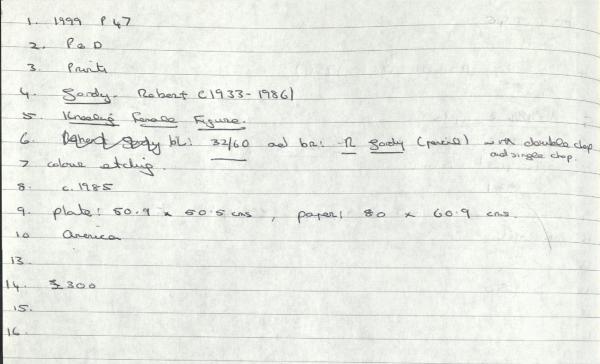 1. 1999 P 47
2. P & D
3. Prints
4. Gordy - Robert (1933-1986)
5. Kneeling Female Figure.
6. bL: 32/60 and bR: R Gordy (pencil) with double chop
and single chop.
7 colour etching.
8. c. 1985
9. plate: 50.9 x 50.5 cms, paper: 80 x 60.9 cms.
10 America
13.
14. $300
15.
16.